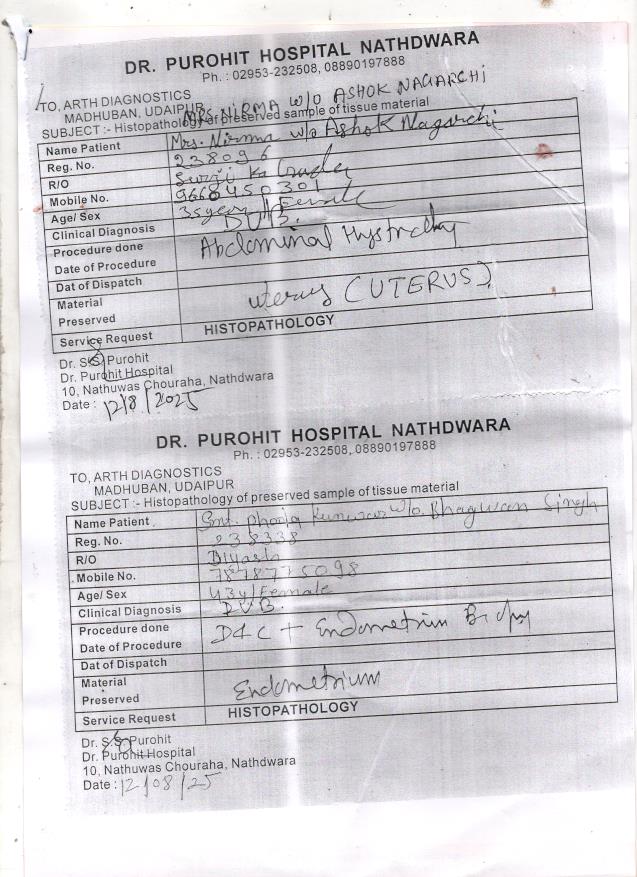 DR. PUROHIT HOSPITAL NATHDWARA
Ph. : 02953-232508, 08890197888
TO, ARTH DIAGNOSTICS
MADHUBAN, UDAIPUR
MRS. NIRMA W/O ASHOK NAGARCHI
SUBJECT :- Histopathology of preserved sample of tissue material
Name Patient Mrs. Nirma w/o Ashok Nagarchi
Reg. No. 238096
R/O
Mobile No. 9668450301
Age/ Sex 35year/Female
Clinical Diagnosis DUB.
Procedure done Abdominal
Date of Procedure
Dat of Dispatch
Material
Preserved uterus (UTERUS)
Service Request HISTOPATHOLOGY
Dr. S.S. Purohit
Dr. Purohit Hospital
10, Nathuwas Chouraha, Nathdwara
Date : 12/8/2025
DR. PUROHIT HOSPITAL NATHDWARA
Ph. : 02953-232508, 08890197888
TO, ARTH DIAGNOSTICS
MADHUBAN, UDAIPUR
SUBJECT :- Histopathology of preserved sample of tissue material
Name Patient Smt. Kunwar w/o. Bhagwan Singh
Reg. No. 238338
R/O
Mobile No. 7878775098
Age/ Sex 43y/Female
Clinical Diagnosis DUB.
Procedure done D&C + Endometrium
Date of Procedure
Dat of Dispatch
Material
Preserved Endometrium
Service Request HISTOPATHOLOGY
Dr. S.S. Purohit
Dr. Purohit Hospital
10, Nathuwas Chouraha, Nathdwara
Date : 12/08/25